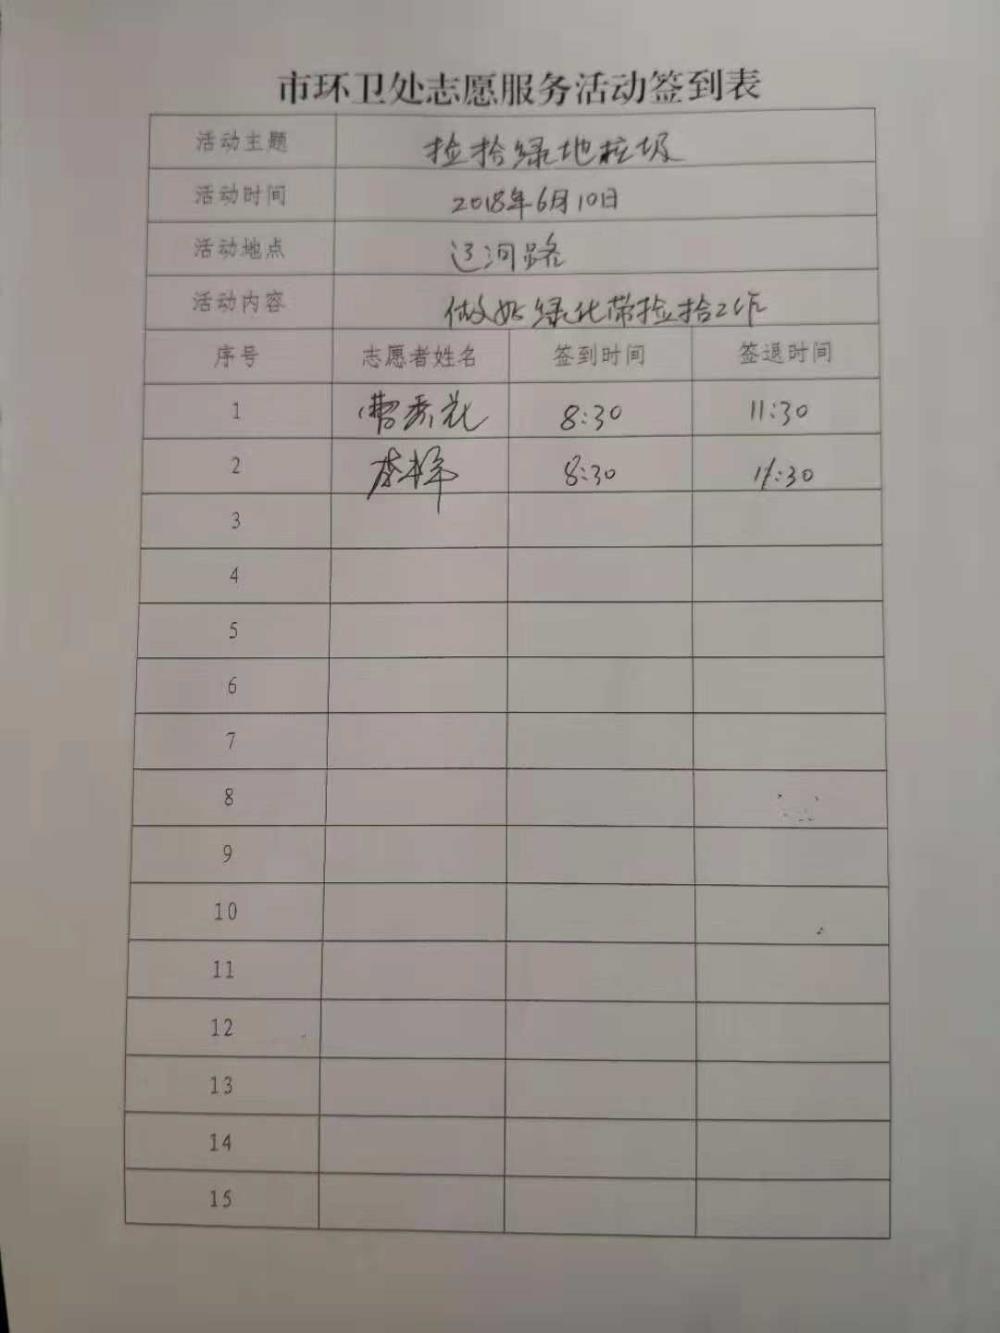 市环卫处志愿服务活动签到表
活动主题 捡拾绿地垃圾
活动时间 2018年6月10日
活动地点 辽河路
活动内容 做好绿化带捡拾工作
序号 志愿者姓名 签到时间 签退时间
1 曹秀花 8:30 11:30
2 8:30 11:30
3
4
5
6
7
8
9
10
11
12
13
14
15